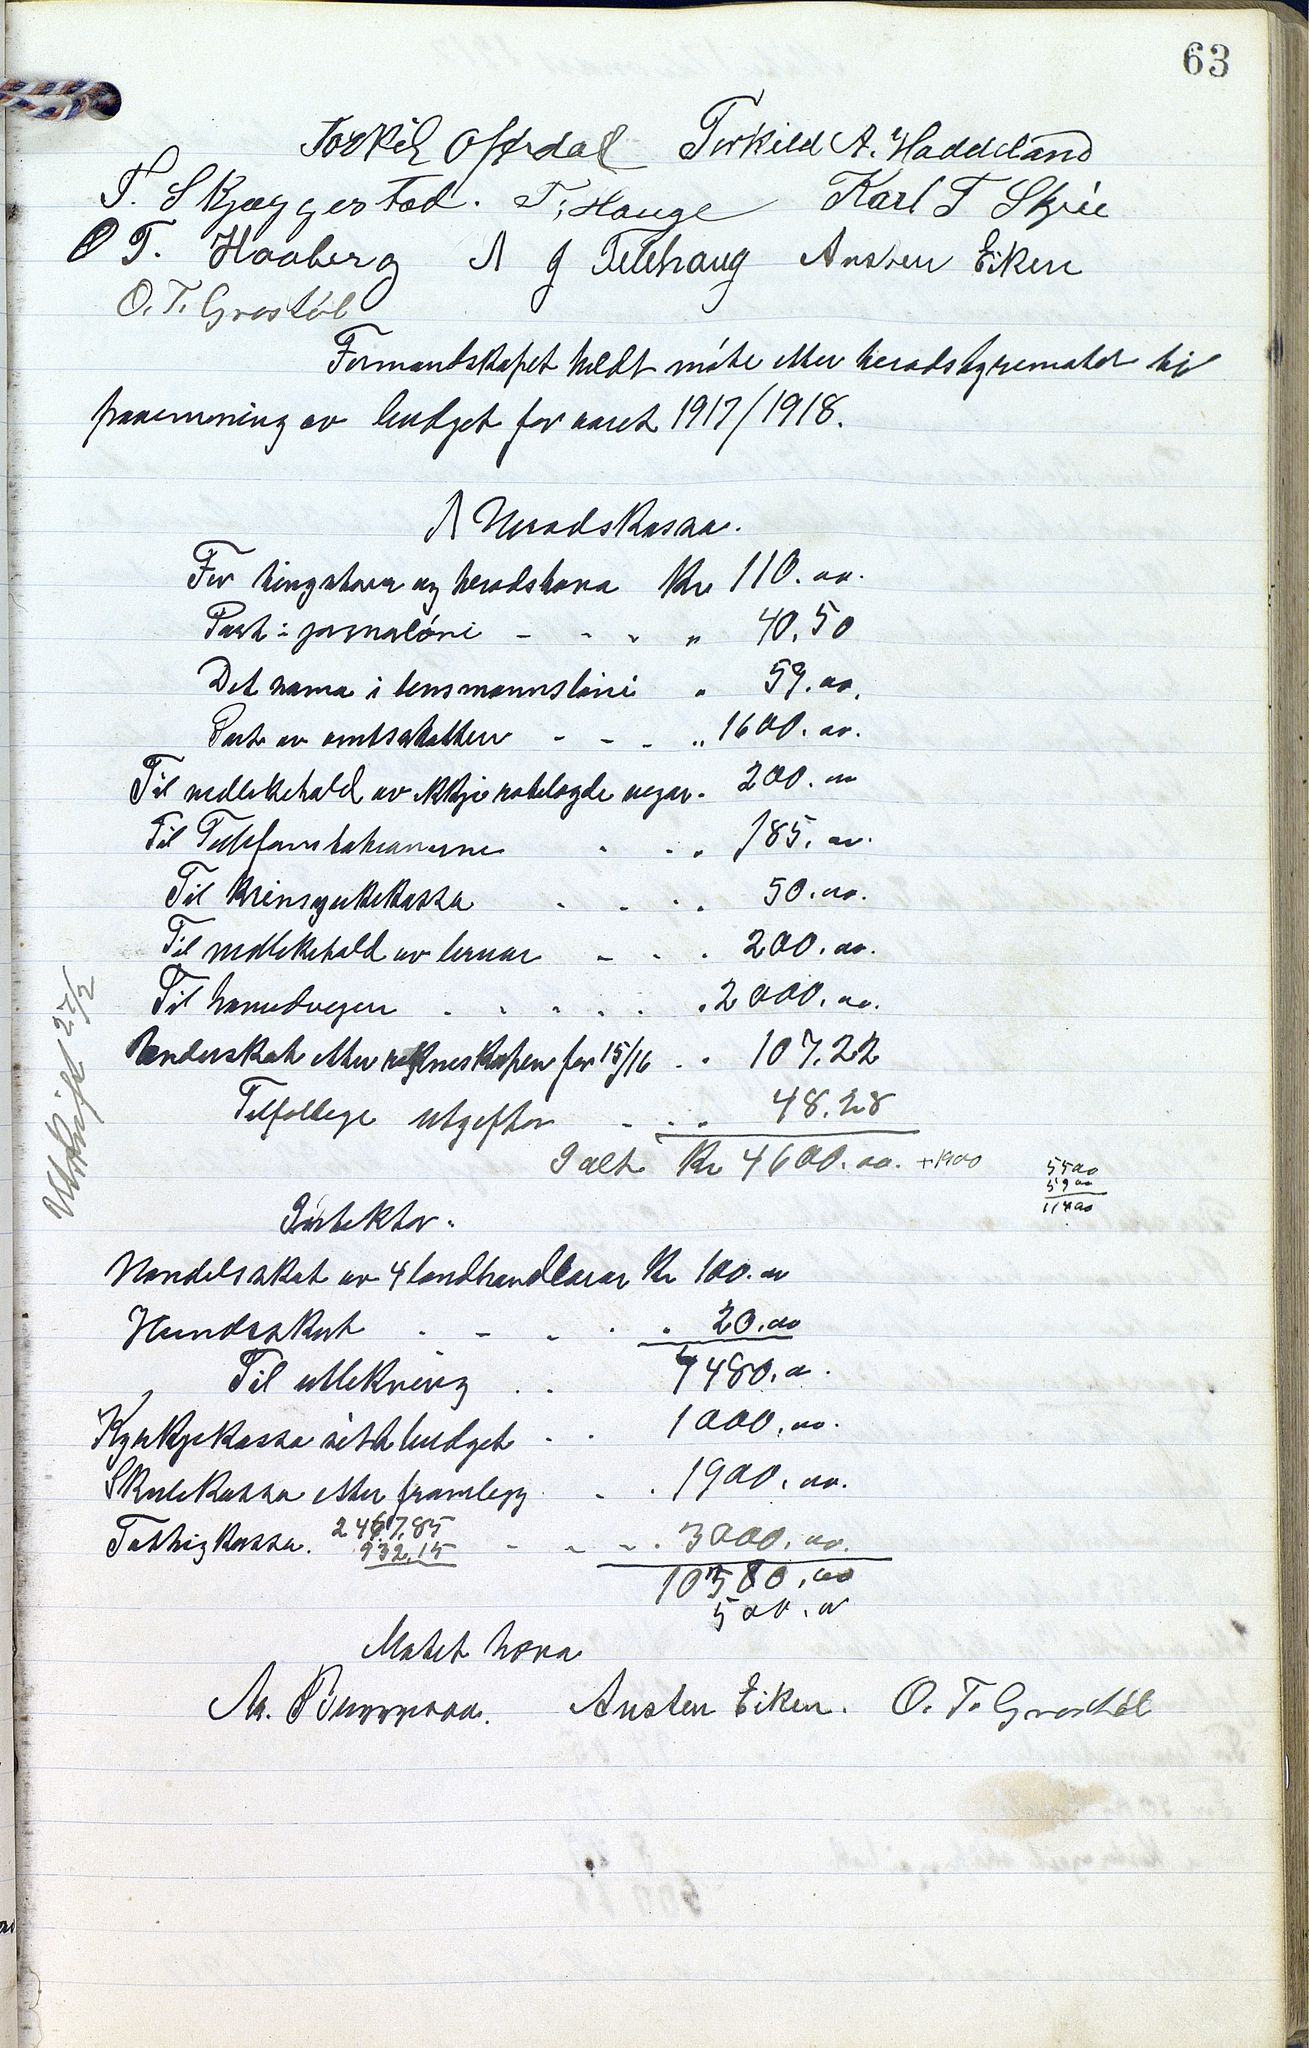 63
Torkil Ofsdal Torkild A. Haddeland
T. Skjeggestad. T. Hauge Karl T Skjeie
O T. Haaberg A G Telehaug Austen Eiken
O. T. Grostøl
Formandskapet heldt møte etter heradstyremøtet til
framsening av budget for aaret 1917/1918.
A Heradskassa.
For tinghava og heradshava Kr 110.00.
Part i jormorløni - - - " 40.50
Det sama i lensmannsløni " 59.00.
Part av amtsskatten - - - " 1600.00.
Til vedlikehald av ikkje rodelagde vegar. 200.00
Til Telefonstationerne - - " 185.00.
Til Krinssjukekassa - - - . 50.00.
Til vedlikehald av bruar - - . 200.00.
Til hovudvegen . . . . . . 2000.00.
Underskot etter rekneskapen for 15/16 . . 107.22
Tilfellege utgiftor - . . 48.28
I alt Kr 4600.00. +1900
5500
5900
11400
Utskrift 27/2
Inntektor.
Handelsskat av 4 landhandlarar Kr 100.00
Hundeskat . - - . . 20.00
Til utlikning . . 4480.00.
Kyrkjekassa sitt budget . . 1000.00.
Skulekassa etter framlegg . . 1900.00.
Fattigkassa. 2467.85 - - - . 3000.00.
932.15
10380.00
500.00
Møtet hæva
Austen Eiken. O. T. Grostøl